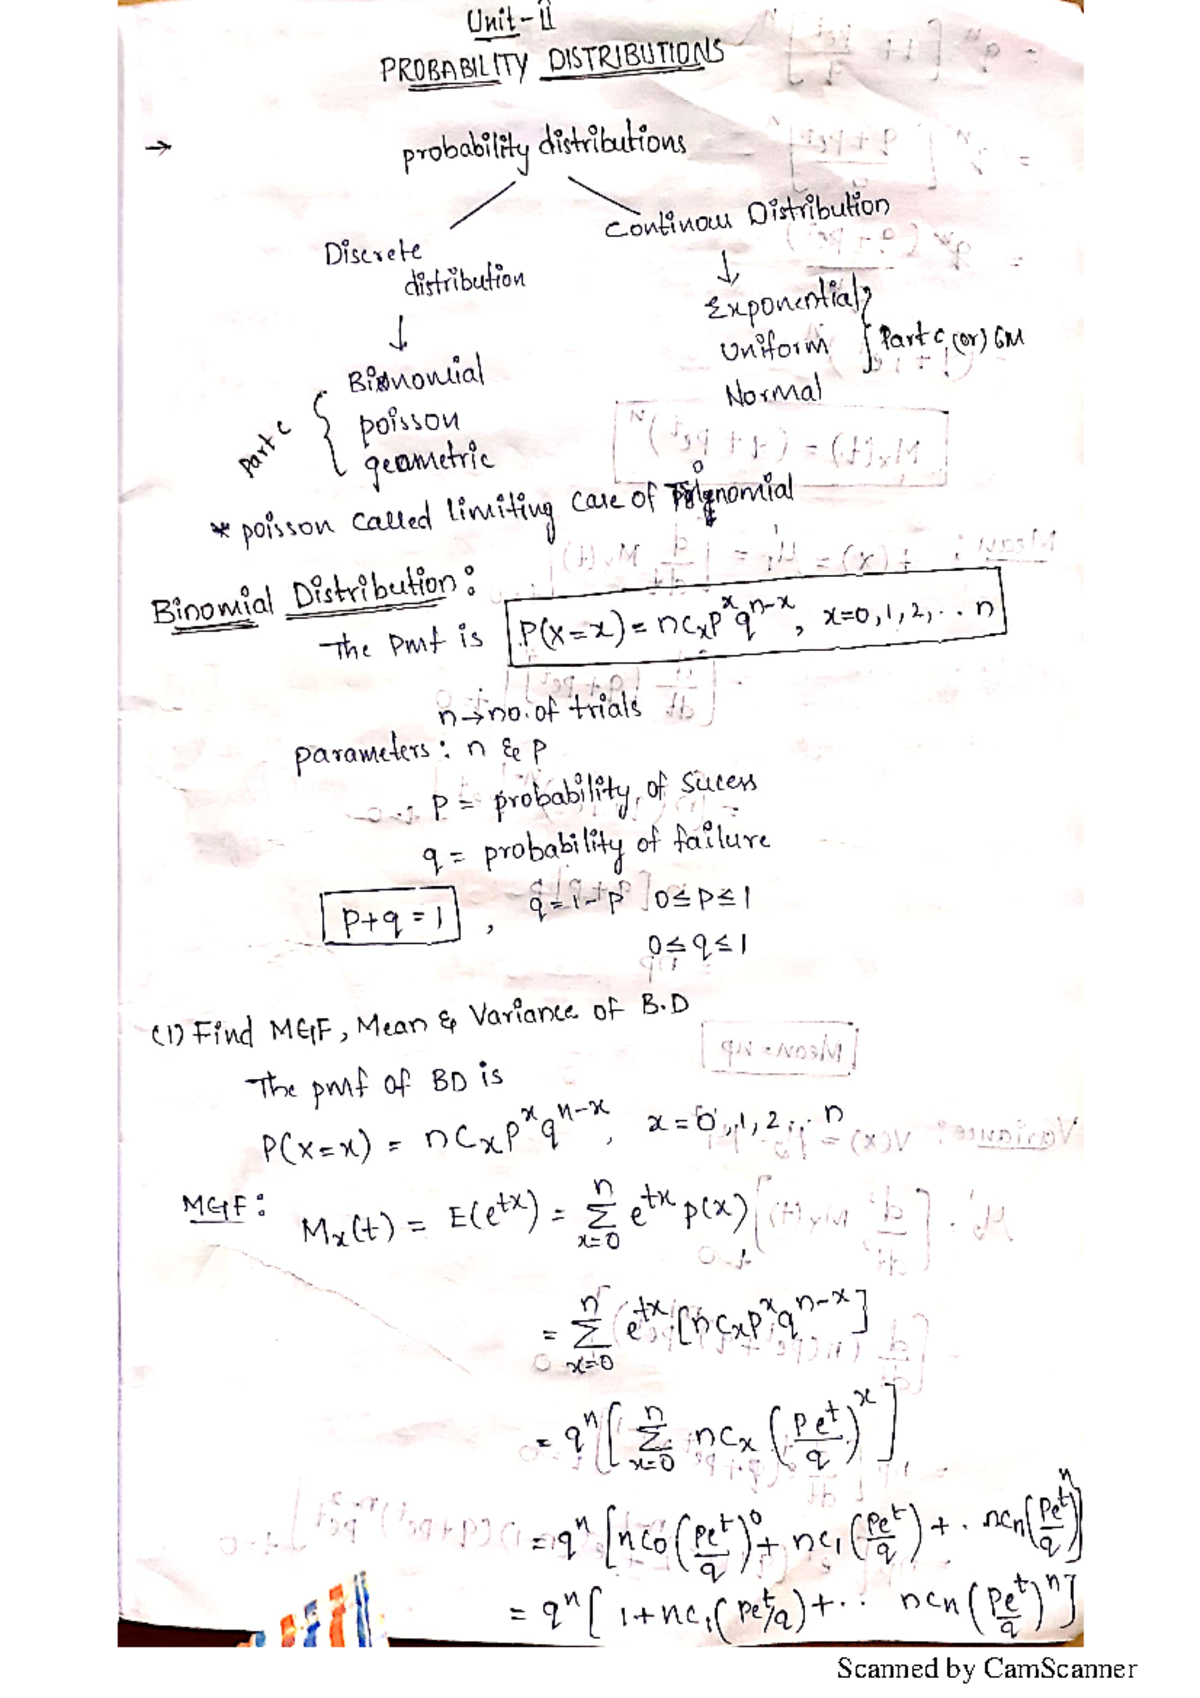 Unit-II
PROBABILITY DISTRIBUTIONS
→ probability distributions
Discrete distribution
Continous Distribution
↓
↓
Binomial
poisson
geometric
part c
Exponential
Uniform
Normal
Part C (or) 6M
* poisson called limiting case of
Binomial Distribution:
The pmf is P(X=x) = nCx p^x q^n-x, x=0,1,2,.. n
n→no.of trials
parameters: n & p
p = probability of sucess
q = probability of failure
p+q=1, q=1-p 0≤p≤1
0≤q≤1
(1) Find MGF, Mean & Variance of B.D
The pmf of BD is
P(X=x) = nCx p^x q^n-x, x=0,1,2.. n
MGF: Mx(t) = E(e^tx) = n Σ x=0 e^tx p(x)
= n Σ x=0 e^tx [nCx p^x q^n-x]
= q^n [n Σ x=0 nCx (pe^t/q)^x]
= q^n [nC0 (pe^t/q)^0 + nC1 (pe^t/q) + .. nCn (pe^t/q)^n]
= q^n [1+nC1 (pe^t/q)+.. nCn (pe^t/q)^n]
Scanned by CamScanner